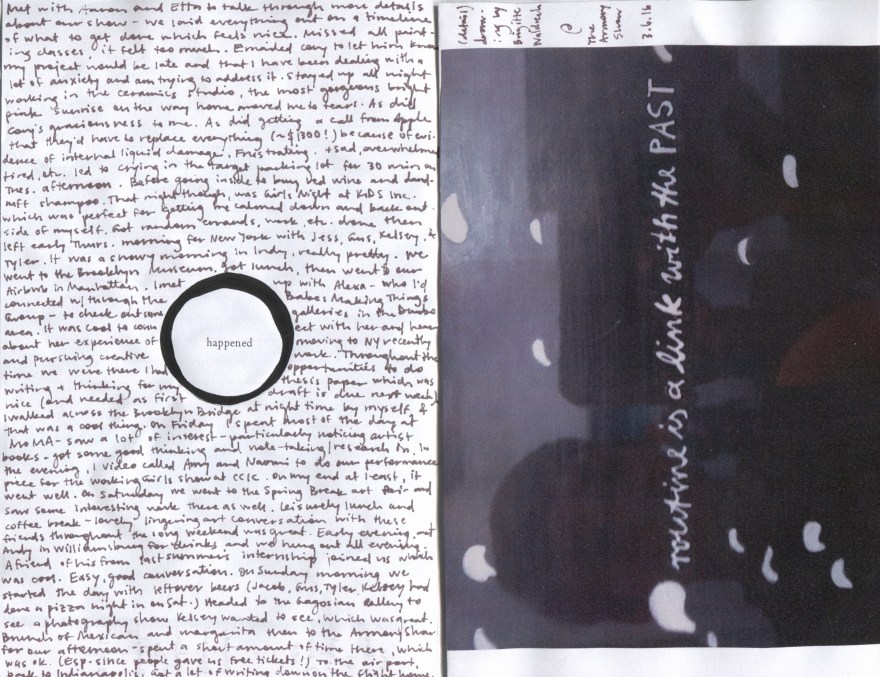 Met with Aaron and Etta to talk through more details
about our show - we laid everything out on a timeline
of what to get done which feels nice. Missed all print-
ing classes, it felt too much. Emailed Cory to let him know
my project would be late and that I have been dealing with a
lot of anxiety and am trying to address it. Stayed up all night
working in the ceramics studio, the most gorgeous bright
pink sunrise on the way home moved me to tears. As did
Cory's graciousness to me. As did getting a call from Apple
that they'd have to replace everything (~$1300!) because of evi-
dence of internal liquid damage. Frustrating + sad, overwhelmed
tired, etc. led to crying in the Target parking lot for 30 min on
Tues. afternoon. Before going inside to buy red wine and dand-
ruff shampoo. That night though, was Girls Night at KDS Inc.
which was perfect for getting me calmed down and back out-
side of myself. Got random errands, work, etc. done then
left early Thurs. morning for New York with Jess, Gus, Kelsey, &
Tyler. It was a snowy morning in Indy, really pretty. We
went to the Brooklyn Museum, got lunch, then went to our
Airbnb in Manhattan. I met up with Alexa - who I'd
connected w/ through the Babes Making Things
Group - to check out some galleries in the Dumbo
area. It was cool to connect with her and hear
about her experience of moving to NY recently
and pursuing creative work. Throughout the
time we were there I had opportunities to do
writing + thinking for my thesis paper which was
nice (and needed as first draft is due next week)
I walked across the Brooklyn Bridge at night time by myself &
that was a cool thing. On Friday I spent most of the day at
MoMA - saw a lot of interest - particularly noticing artist
books - got some good thinking and note-taking/research in. In
the evening, I video called Amy and Naomi to do our performance
piece for the Working Girls show at CCIC. On my end at least, it
went well. On Saturday we went to the Spring Break art fair and
saw some interesting work there as well. Leisurely lunch and
coffee break - lovely, lingering art conversation with these
friends throughout the long weekend was great. Early evening, met
Andy in Williamsburg for drinks and we hung out all evening.
A friend of his from last summer's internship joined us which
was cool. Easy, good conversation. On Sunday morning we
started the day with leftover beers (Jacob, Gus, Tyler, Kelsey had
done a pizza night in on Sat.) Headed to the Gagosian Gallery to
see a photography show Kelsey wanted to see, which was great.
Brunch of Mexican and margarita then to the Armory Show
for our afternoon - spent a short amount of time there, which
was ok. (Esp. since people gave us free tickets!) To the airport,
back to Indianapolis, got a lot of writing down on the flight home.
happened
(detail)
drawing by
Brigitte
@
The
Armory
Show
3.6.16
routine is a link with the PAST